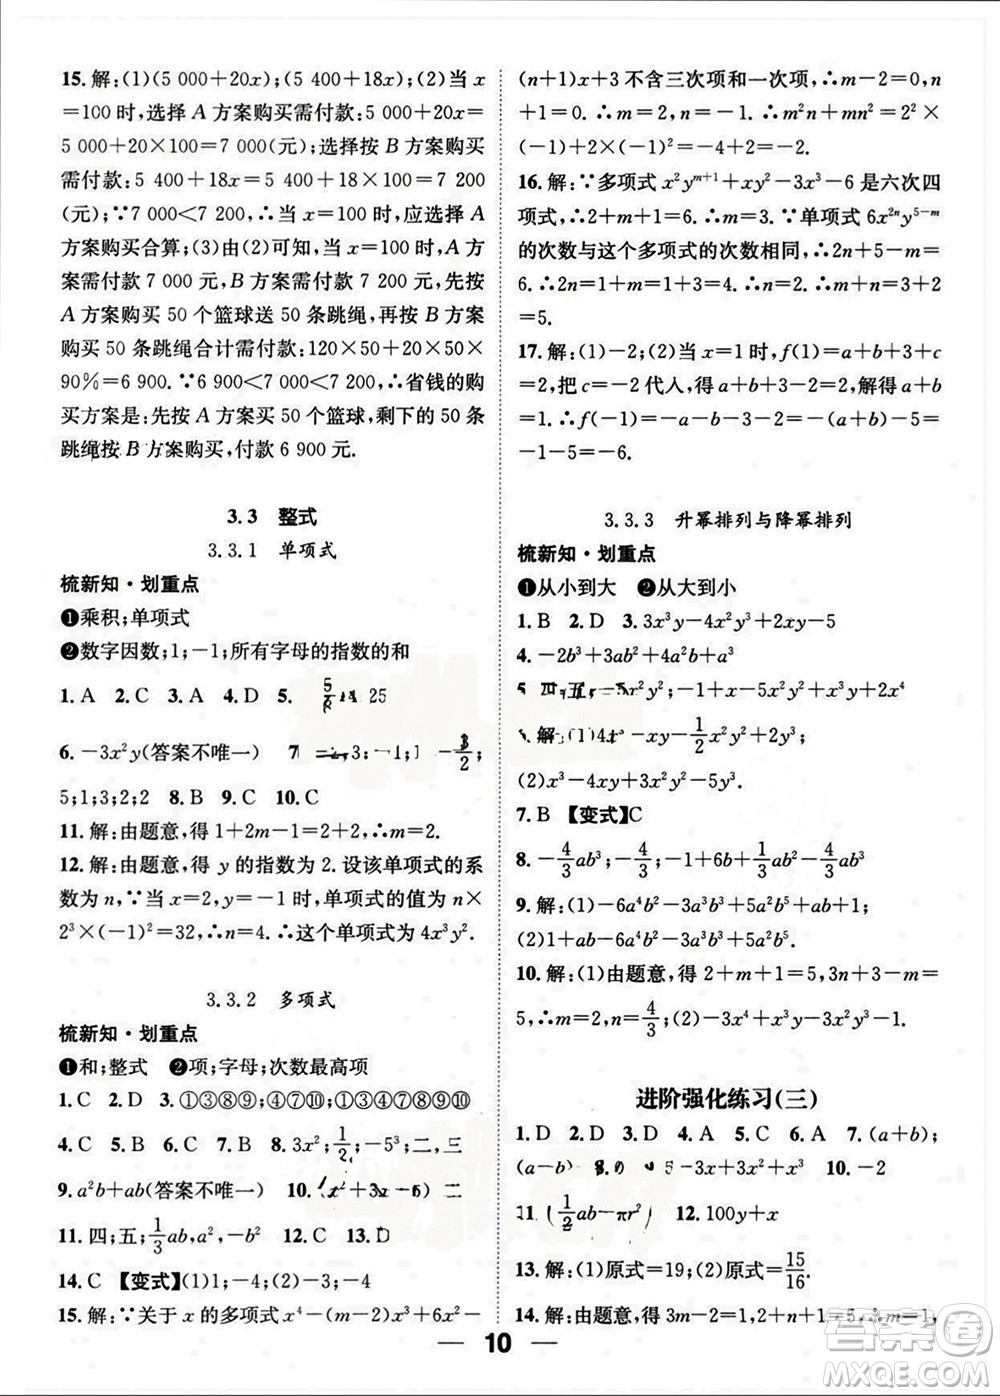 15. 解:(1)(5 000+20x);(5 400+18x);(2)当 x
=100 时,选择 A 方案购买需付款:5 000+20x=
5 000+20×100=7 000(元);选择按 B 方案购买
需付款:5 400+18x=5 400+18×100=7 200
(元);∵7 000<7 200,∴当 x=100 时,应选择 A
方案购买合算;(3)由(2)可知,当 x=100 时,A 方
案需付款 7 000 元,B 方案需付款 7 200 元,先按
A 方案购买 50 个篮球送 50 条跳绳,再按 B 方案
购买 50 条跳绳合计需付款:120×50+20×50×
90%=6 900. ∵6 900<7 000<7 200,∴省钱的
购买方案是:先按 A 方案买 50 个篮球,剩下的 50 条
跳绳按 B 方案购买,付款 6 900 元.
3.3 整式
3.3.1 单项式
梳新知·划重点
❶乘积;单项式
❷数字因数;1;-1;所有字母的指数的和
1. A 2. A 3. D 4. D 5.
6. -3x²y(答案不唯一) 7
5;1;3;2;2 8. B 9. C 10. C
11. 解:由题意,得 1+2m-1=2+2,∴m=2.
12. 解:由题意,得 y 的指数为 2. 设该单项式的系
数为 n,∵当 x=2,y=-1 时,单项式的值为 n×
2³×(-1)²=32,∴n=4. ∴这个单项式为 4x³y².
3.3.2 多项式
梳新知·划重点
❶和;整式 ❷项;字母;次数最高项
1. C 2. D 3. ①③⑧⑨;④⑦⑩;①③④⑦⑧⑨⑩
4. C 5. D 6. C 7. B 8. 3x²;1/2;-5³;二,三
9. a²b+ab(答案不唯一) 10.
11. 四;五;1/3ab,a²,-9 12. A 13. D
14. C 【变式】(1)1;-4;(2)-3;-4
15. 解:∵关于 x 的多项式 x⁴-(m-2)x³+6x²-
(n+1)x+3 不含三次项和一次项,∴m-2=0,n
+1=0. ∴m=2,n=-1. ∴m²n+mn²=2²×
(-1)+2×(-1)²=-4+2=-2.
16. 解:∵多项式 x²yᵐ⁺¹+xy²-3x³-6 是六次四
项式,∴2+m+1=6. ∴m=3. ∵单项式 6x²ⁿy⁵⁻ᵐ
的次数与这个多项式的次数相同,∴2n+5-m=
6. ∴2n=1+m=1+3=4. ∴n=2. ∴m+n=3+2
=5.
17. 解:(1)-2;(2)当 x=1 时,f(1)=a+b+3+c
=2,把 c=-2 代人,得 a+b+3-2=2,解得 a+b
=1. ∴f(-1)=-a-b-3+c=-(a+b)-5=
-1-5=-6.
3.3.3 升幂排列与降幂排列
梳新知·划重点
❶从小到大 ❷从大到小
1. B 2. D 3. 3x³y-4x²y²+2xy-5
4. -2b³+3ab²+4a²b-a³
5 四;五;-5x²y²;-1+xy³-5x²y²+2x⁴
解:(1)4x³-xy-1/2x²y²+xy³;
(2)x³-4x²y+2xy²-5y³.
7. B 【变式】C
8. -4/3ab³;-4/3;-1+6a+1/2ab²-4/3ab³
9. 解:(1)-6a⁴b²+4a³b³-5a²b⁴+2a²b⁵;
(2)2a²b⁵-5a²b⁴+4a³b³-6a⁴b².
10. 解:(1)由题意,得 2+m+1=5,n+3-m=
5,∴m=2,n=4/3;(2)-x⁴-3x³y+3x²y³-1.
进阶强化练习(三)
1. D 2. D 3. D 4. C 5. A 6. A 7. (a+b);
(a-b) 8. 5-3x+4x²-x³ 10. -2
11. (1/2ab-πr²) 12. 100y+x
13. 解:(1)原式=19;(2)原式=15/16.
14. 解:由题意,得 3m-2=1,2+n+1=5,∴m=1,
10
答案圈
MXQE.COM